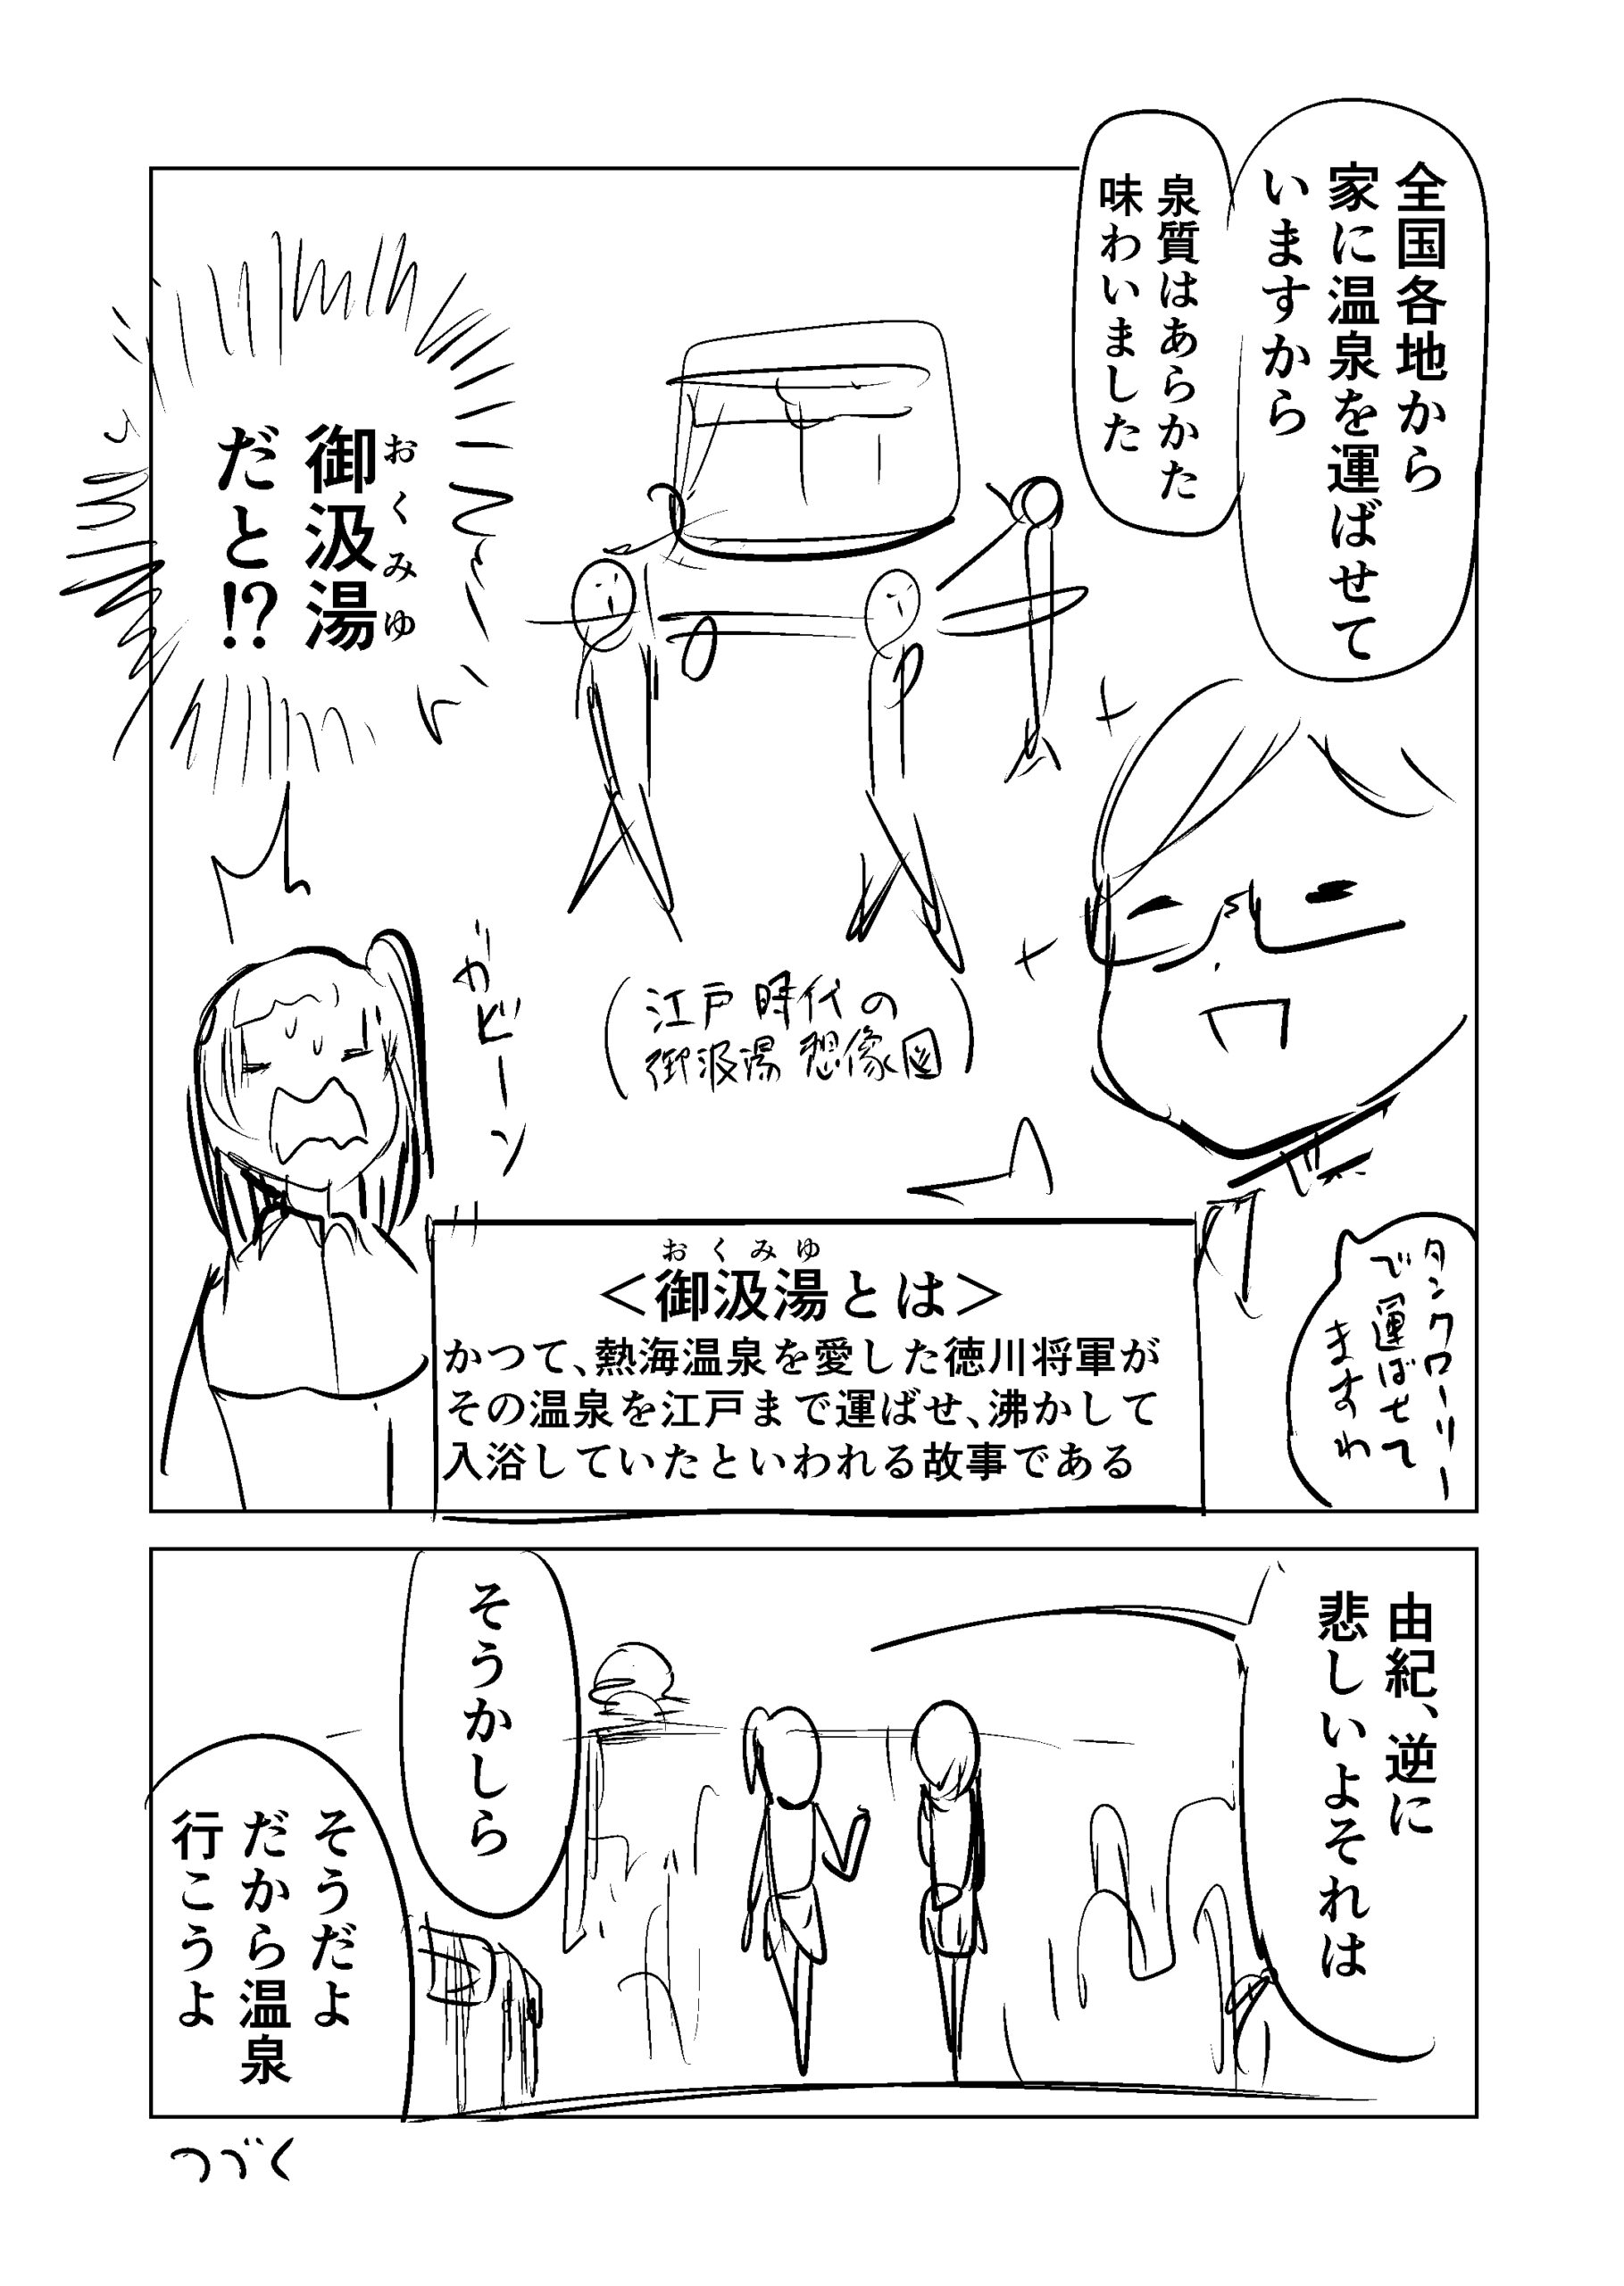 全国各地から
家に温泉を運ばせて
いますから
泉質はあらかた
味わいました
御汲湯
おくみゆ
だと!?
ガビーン
(江戸時代の
御汲湯想像図)
タンクローリー
で運ばせて
ますわ
おくみゆ
＜御汲湯とは＞
かつて、熱海温泉を愛した徳川将軍が
その温泉を江戸まで運ばせ、沸かして
入浴していたといわれる故事である
由紀、逆に
悲しいよそれは
そうかしら
そうだよ
だから温泉
行こうよ
つづく